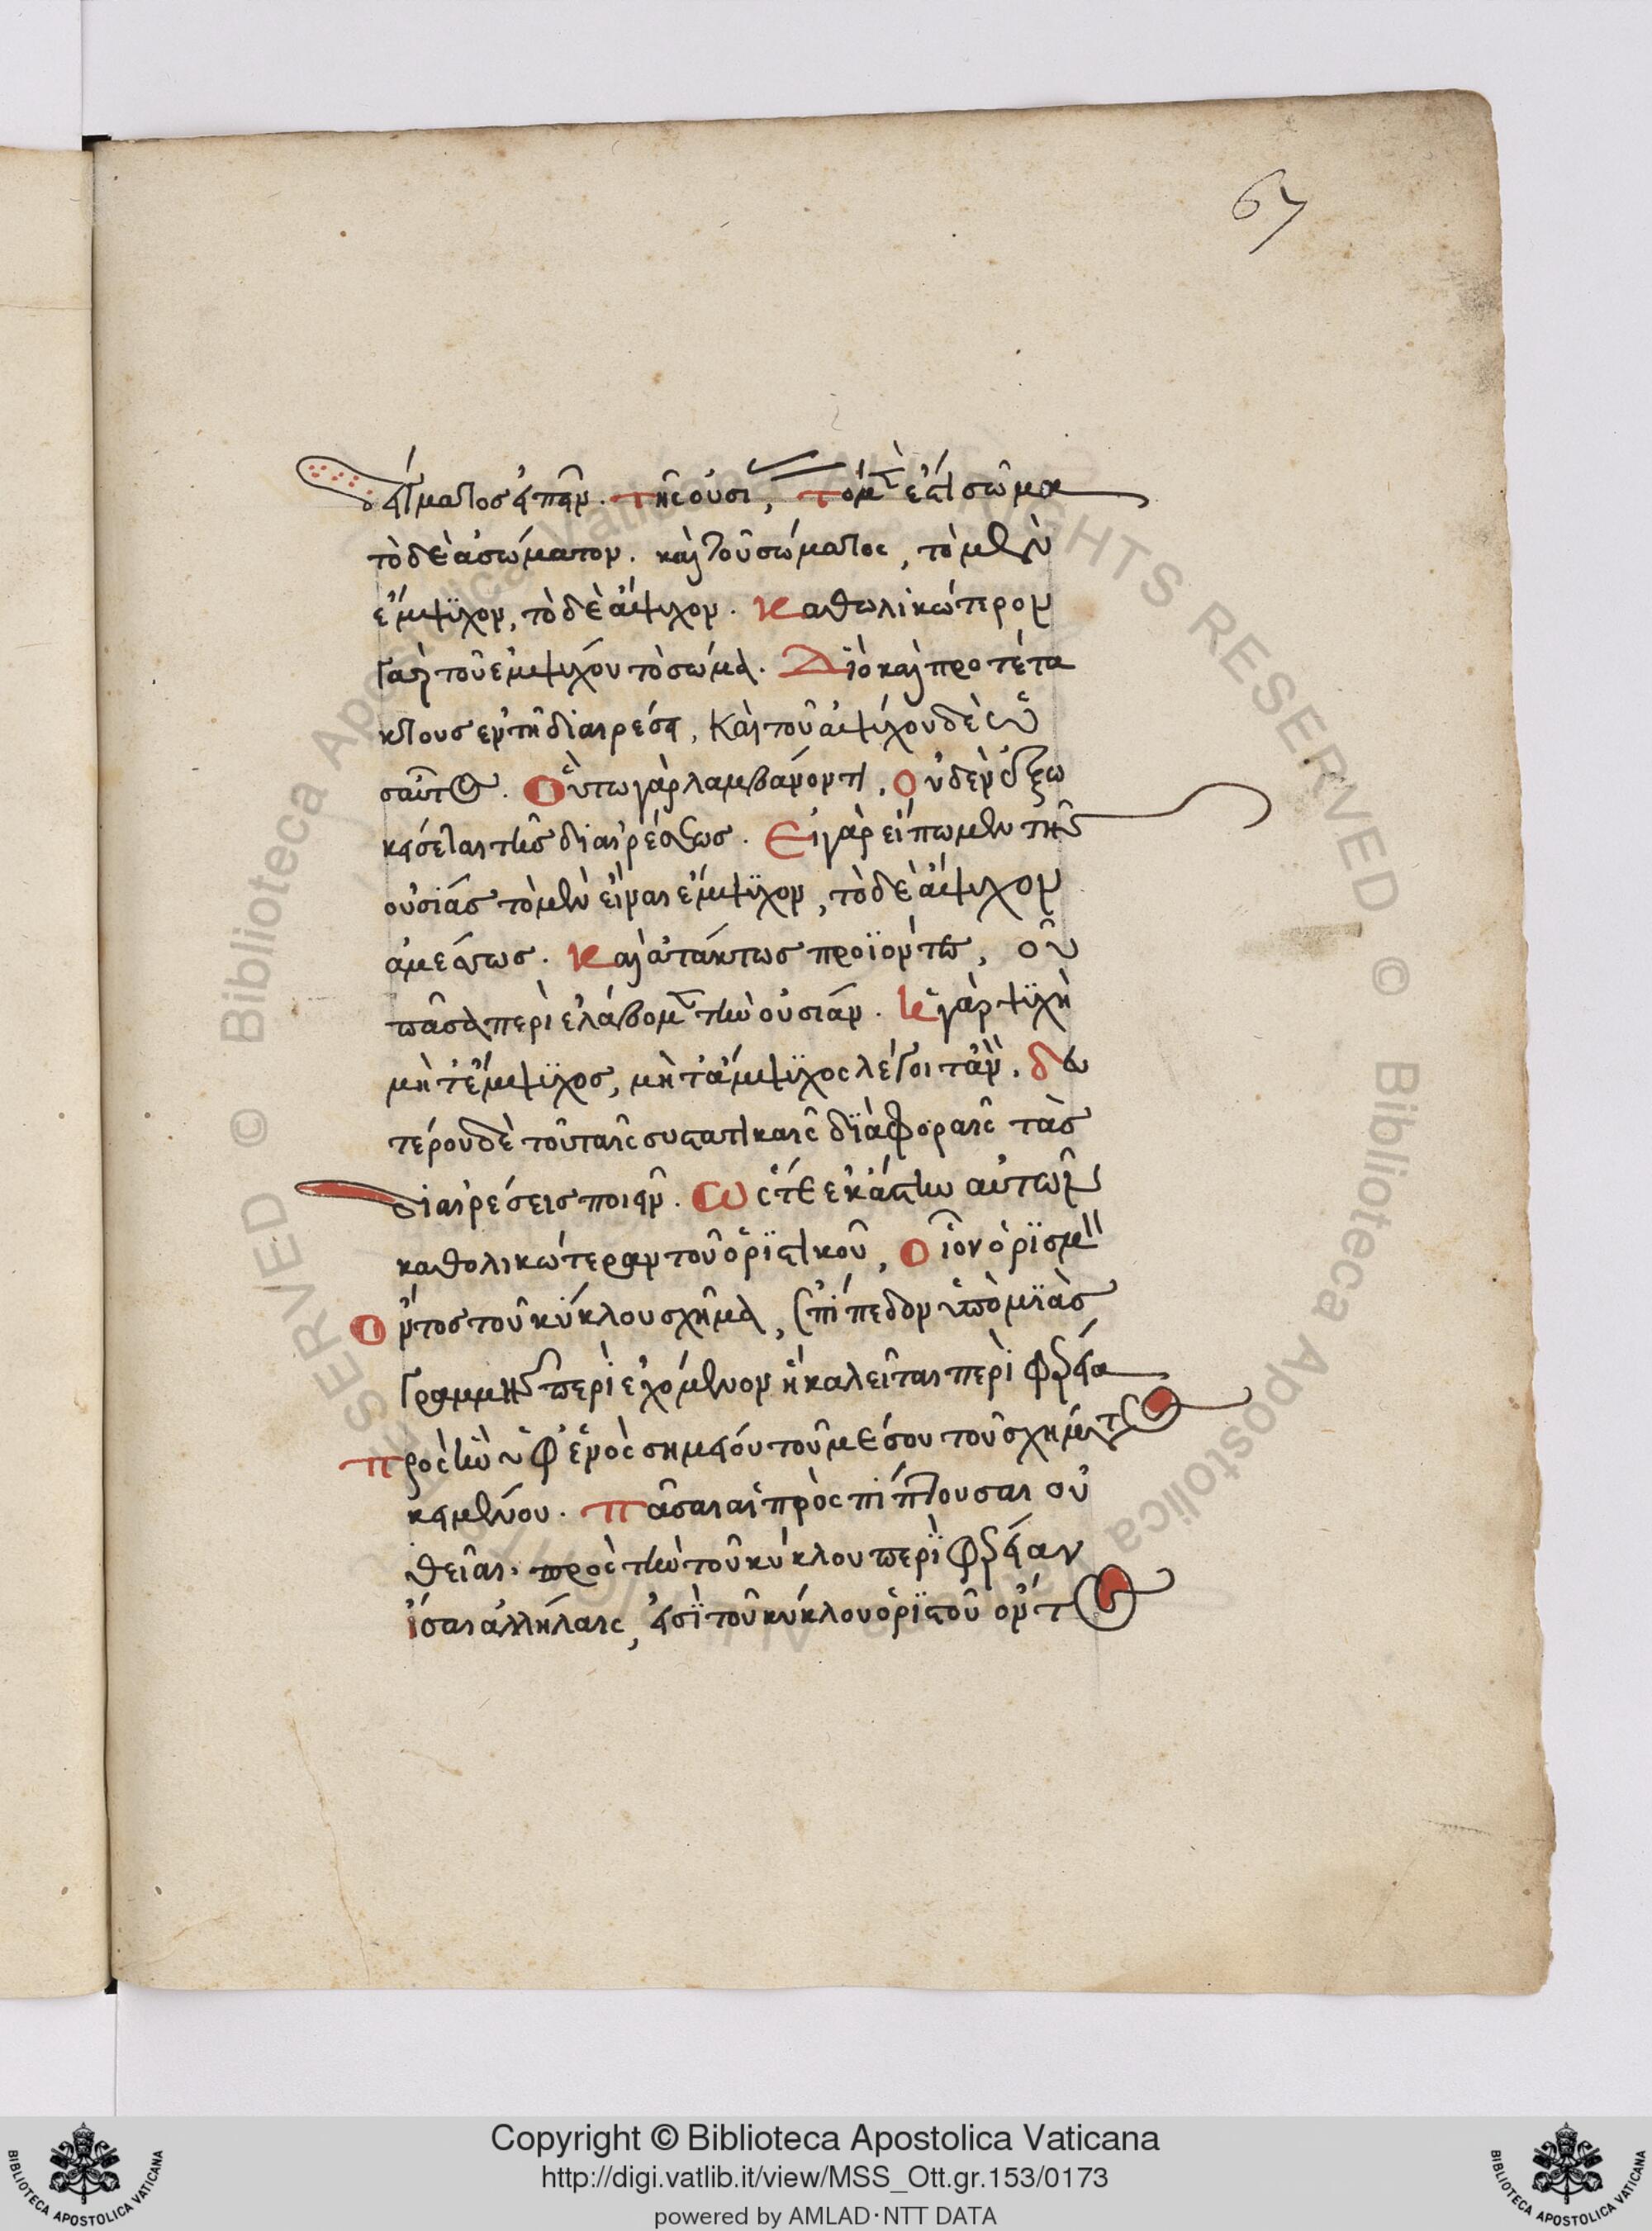 67
δείγματος εἰπεῖν. τῆς οὐσί, τὸ μὲν ἐστὶ σῶμα
τὸ δὲ ἀσώματον. καὶ τοῦ σώματος, τὸ μὲν
ἔμψϋχον, τὸ δὲ ἄψυχον. Καθωλικώτερον
γὰρ τοῦ ἐμψυχόυ τὸ σώμα. Διὸ καὶ προτέτα
κτους ἐν τῆ διαιρέσει, Καὶ τοῦ ἀψύχου δὲ ὡ
σαύτως. Οὕτω γὰρ λαμβανόντι, Οὐδὲν ἔξω
κείσεται τῆς διαιρέσεως. Εἰ γὰρ εἴπωμεν τῆς
οὐσίας τὸ μὲν εἶναι ἔμψϋχον, τὸ δὲ ἄψυχον
ἀμέσως. Καὶ ἀτάκτως προϊόντες, οὐ
πᾶσα περὶ ἐλάβομεν τὴν οὐσίαν. Ἡ γὰρ ψϋχὴ
μὴτ ἔμψϋχος, μὴτ ἄμψϋχος λέγοιτ ἂν. δευ
τέρου δὲ τοῦ ταῖς συστατικαῖς διαφοραῖς τὰς
διαιρέσεις ποιεῖν. Ὥστε ἑκάστην αὐτῶν
καθολικώτεραν τοῦ ὁρϊστικοῦ, Οἷον ὁρϊσμ
Οντος τοῦ κύκλου σχῆμα, ἐπίπεδον ὑπὸ μϊὰς
γραμμῆς περὶ ἐχόμενον ἣ καλεῖται περὶ φέρεια
Πρὸς ἣν ὑφ' ἑνὸς σημείου τοῦ μέσου τοῦ σχήματος
κειμένου. Πᾶσαι αἱ πρὸς πίπτουσαι εὐ
θεῖαι. πρὸς τὴν τοῦ κύκλου περὶ φέρειαν
ἴσαι ἀλλήλαις, εἰσὶ τοῦ κύκλου ὁρϊστοῦ ὄντος
Copyright © Biblioteca Apostolica Vaticana
http://digi.vatlib.it/view/MSS_Ott.gr.153/0173
powered by AMLAD·NTT DATA
BIBLIOTECA APOSTOLICA VATICANA
BIBLIOTECA APOSTOLICA VATICANA